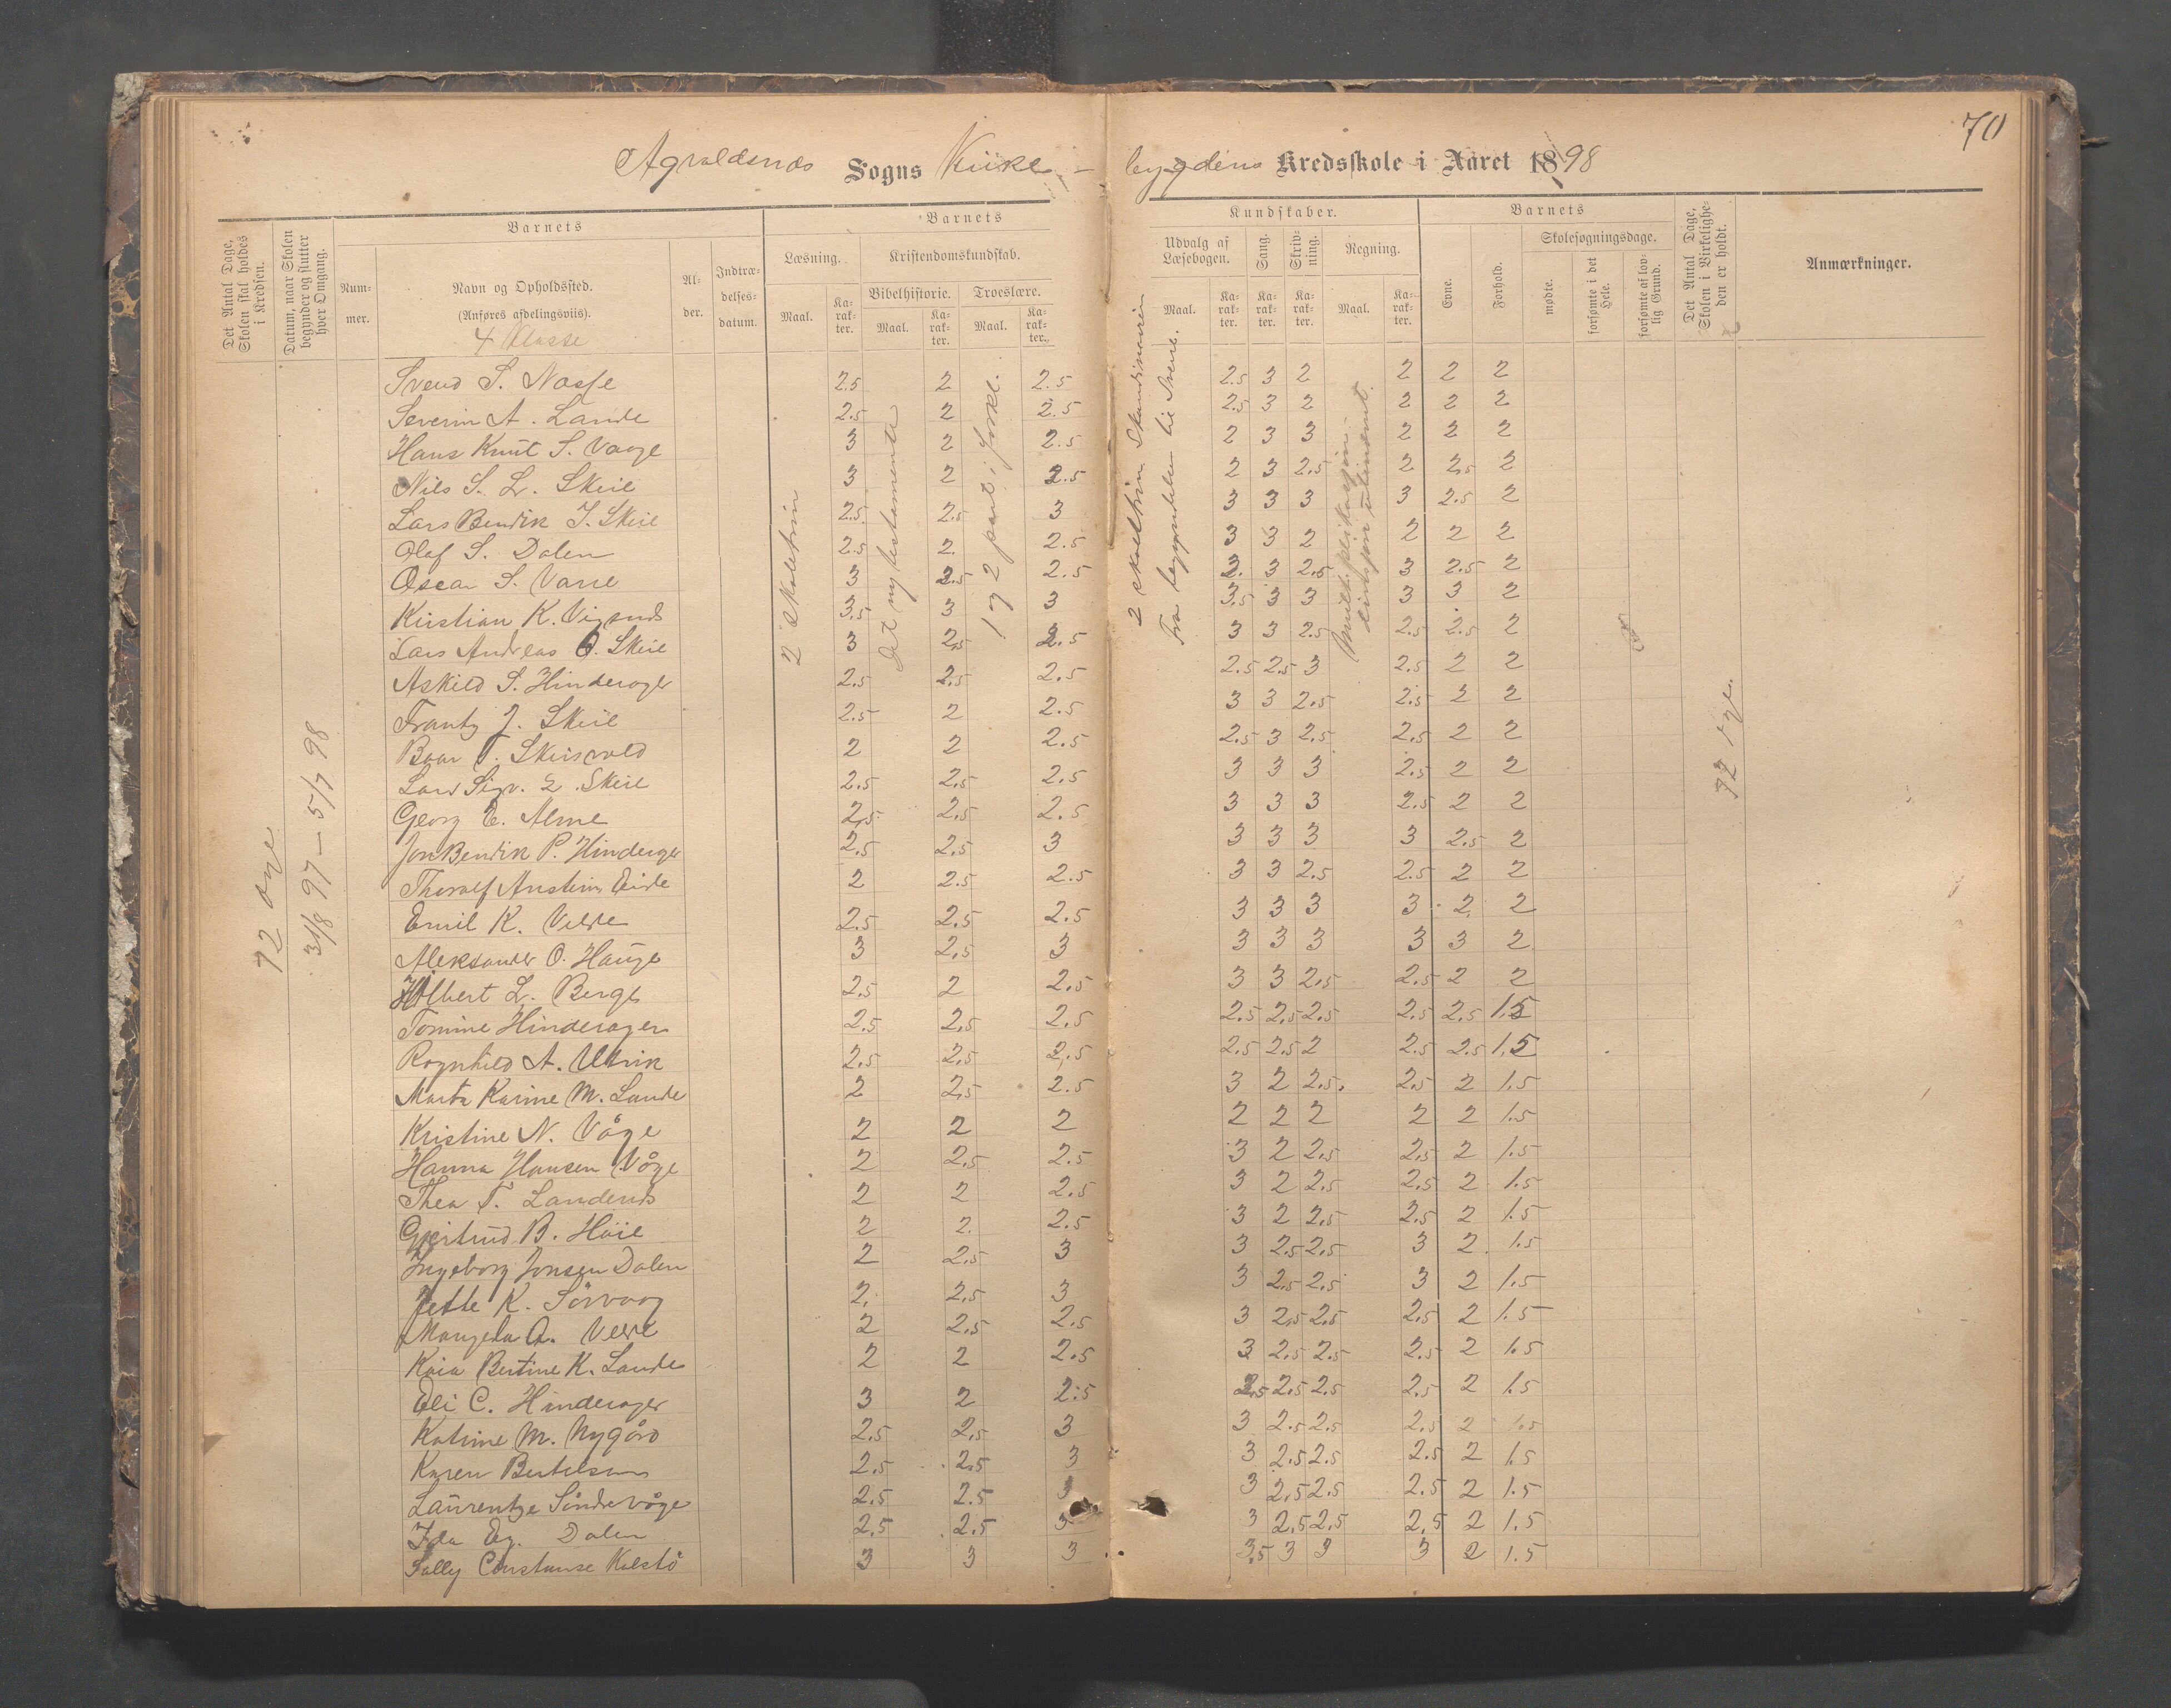 70
Sogns Kirke-
bygdens Kredsskole i Aaret 1898
Det Antal Dage, Skolen skal holdes i Kredsen.
Datum, naar Skolen begynder og slutter hver Omgang.
Barnets
Num-mer.
Navn og Opholdssted.
(Anføres afdelingsviis).
4 Klasse
Al-der.
Indtræ-delses-datum.
Barnets
Læsning.
Maal.
Ka-rak-ter.
Kristendomskundskab.
Bibelhistorie.
Maal.
Ka-rak-ter.
Troeslære.
Maal.
Ka-rak-ter.
Kundskaber.
Udvalg af Læsebogen.
Maal.
Ka-rak-ter.
Sang.
Ka-rak-ter.
Skriv-ning.
Ka-rak-ter.
Regning.
Maal.
Ka-rak-ter.
Barnets
Evne.
Forhold.
Skolesøgningsdage.
mødte.
forsømte i det Hele.
forsømte af lov-lig Grund.
Det Antal Dage, Skolen i Virkelighe-den er holdt.
Anmærkninger.
31/8 97 – 5/7 98
2 skoletrin
Det ny testamente
1 og 2 part i forkl.
2 skoletrin
Svend S. 2.5 2 2.5 2.5 3 2 2 2 2
Severin A. Lande 2.5 2 2.5 2.5 3 2 2 2 2
Hans Knut S. Vaage 3 2 2.5 2 3 3 2 2 2
Nils S. L. Skeie 3 2 2.5 2 3 2.5 2 2.5 2
Lars Bendik J. Skeie 2.5 2.5 3 3 3 3 3 2.5 2
Olaf S. Dalen 2.5 2 2.5 3 3 2 2 2 2
Oscar S. 3 2.5 2.5 3 3 2.5 3 2.5 2
Kristian K. 3.5 3 3 3.5 3 3 3 3 2
Lars Andreas O. Skeie 3 2.5 2.5 3 3 2.5 2.5 2.5 2
Askild S. Hinderager 2.5 2.5 2.5 2.5 2.5 3 2.5 2 2
Frantz J. Skeie 2.5 2 2.5 3 3 2.5 2.5 2 2
2 2 2.5 2.5 3 2.5 2.5 2 2
Lars Sigv. L. Skeie 2.5 2.5 2.5 3 3 3 2.5 2 2
Georg E. 2.5 2.5 2.5 3 3 3 2.5 2 2
Jon Bendik P. Hinderager 2.5 2.5 3 3 3 3 3 2.5 2
Thoralf Eide 2 2.5 2.5 3 3 2.5 2.5 2 2
Emil K. Velde 2.5 2.5 2.5 3 3 3 3 2 2
Aleksander O. Hauge 3 2.5 3 3 3 3 3 3 2
L. Berge 2.5 2 2.5 3 3 2.5 2.5 2 2
Tomine Hinderager 2.5 2.5 2.5 2.5 2.5 2.5 2.5 2.5 1.5
Ragnhild A. Utvik 2.5 2.5 2.5 2.5 2.5 2 2.5 2.5 1.5
Marta Karine M. Lande 2 2.5 2.5 3 2 2.5 2.5 2 1.5
Kristine N. Våge 2 2 2 2 2 2 2 2 1.5
Hanna Hansen Våge 2 2.5 2.5 3 2 2.5 2.5 2 1.5
Thea T. 2 2 2.5 3 2 2.5 2.5 2 1.5
Gjertrud B. Høie 2 2 2.5 3 2 2.5 2.5 2 1.5
Ingeborg Jonsen Dalen 2 2.5 3 3 2.5 2.5 3 2 1.5
Jette K. Sørvaag 2 2.5 3 3 2.5 2.5 3 2 1.5
2 2.5 2.5 3 2.5 2.5 2.5 2 1.5
Kaia Bertine K. Lande 2 2 2.5 3 2.5 2.5 2.5 2 1.5
Eli C. Hinderager 3 2 2.5 2.5 2.5 2.5 2.5 2 1.5
Katrine M. Nygård 2.5 2.5 3 3 2.5 2.5 2.5 2 1.5
Karen Bertelsen 2.5 2.5 3 3 2.5 2.5 2.5 2 1.5
Laurentze Søndrevåge 2.5 2.5 3 3 2.5 2.5 2.5 2 1.5
Ida Dalen 2.5 2.5 3 3 2.5 2.5 2.5 2 1.5
Constanse Kolstø 3 3 3 3.5 3 3 3 2 1.5